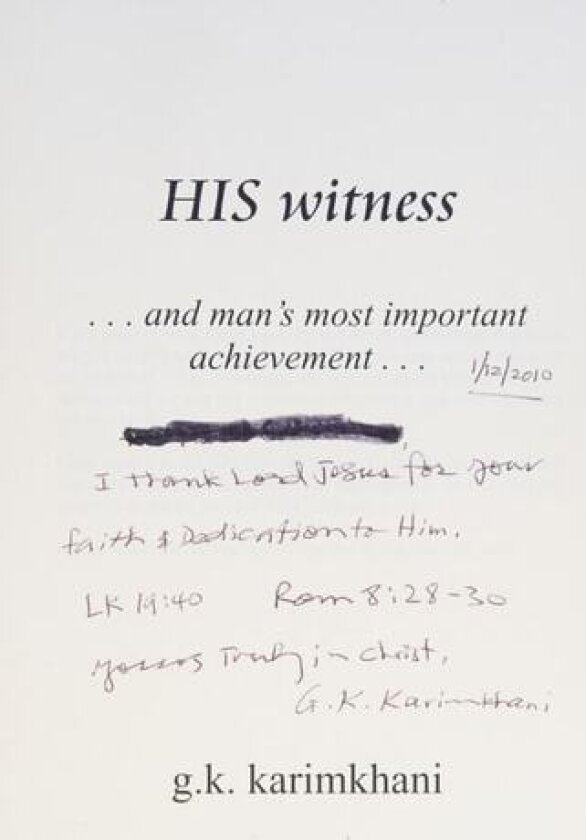 HIS witness
. . . and man's most important
achievement . . .
1/12/2010
I thank Lord Jesus for your
faith & Dedication to Him.
LK 19:40 Rom 8:28-30
Yours Truly in Christ,
G.K. Karimkhani
g.k. karimkhani